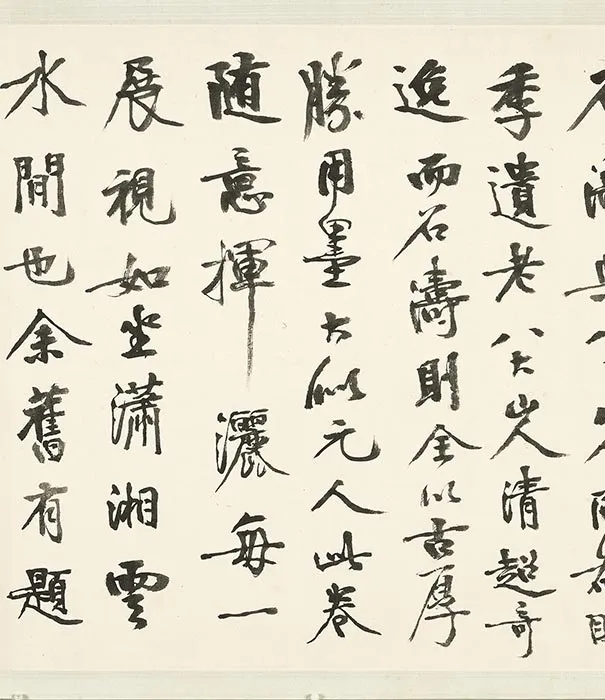 季遺老八大山人清超奇
逸而石濤則全以古厚
勝用墨大似元人此卷
随意揮灑每一
展視如坐瀟湘雲
水間也余舊有題